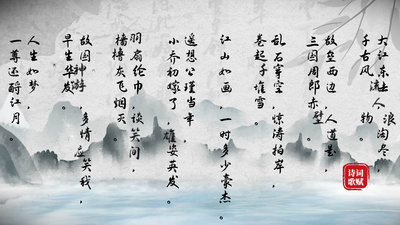 大江东去，浪淘尽，
千古风流人物。
故垒西边，人道是，
三国周郎赤壁。
乱石穿空，惊涛拍岸，
卷起千堆雪。
江山如画，一时多少豪杰。
遥想公瑾当年，
小乔初嫁了，雄姿英发。
羽扇纶巾，谈笑间，
樯橹灰飞烟灭。
故国神游，多情应笑我，
早生华发。
人生如梦，
一尊还酹江月。
诗词
歌赋